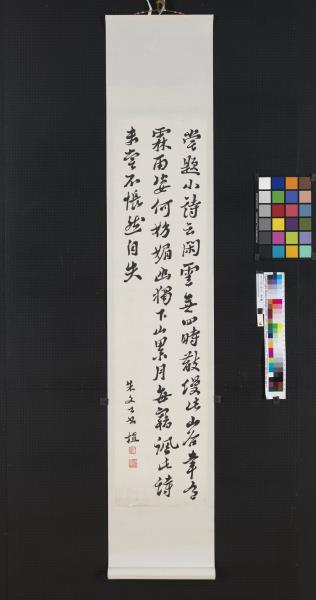 嘗題小詩云閑雲無四時散漫此山谷幸乏
霖雨姿何妨媚幽獨下山累月每竊諷此詩
未嘗不悵然自失
朱文公 植